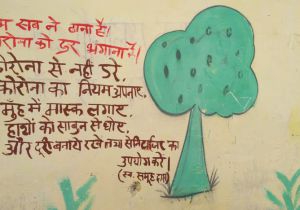 म सब ने ठाना है।
रोना को दूर भगाना है।
कोरोना से नहीं डरे,
कोरोना का नियम अपनाए,
मुँह में मास्क लगाए,
हाथों को साबुन से धोए,
और दूरी बनाये रखे तथा सेनिटाजर का
उपयोग करे।
(स्व. समूह